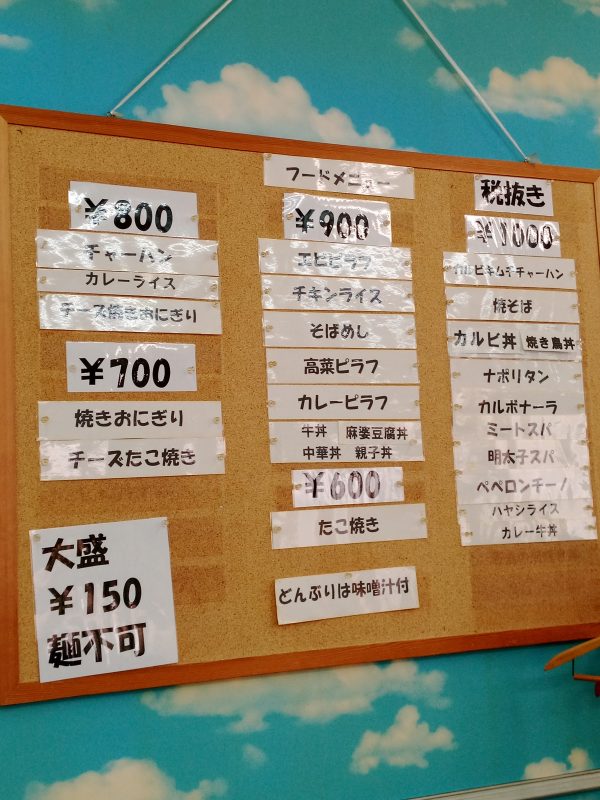 フードメニュー
税抜き
¥800
チャーハン
カレーライス
チーズ焼きおにぎり
¥700
焼きおにぎり
チーズたこ焼き
大盛
¥150
麺不可
¥900
エビピラフ
チキンライス
そばめし
高菜ピラフ
カレーピラフ
牛丼 麻婆豆腐丼
中華丼 親子丼
¥600
たこ焼き
どんぶりは味噌汁付
¥1000
カルビキムチチャーハン
焼そば
カルビ丼 焼き鳥丼
ナポリタン
カルボナーラ
ミートスパ
明太子スパ
ペペロンチーノ
ハヤシライス
カレー牛丼